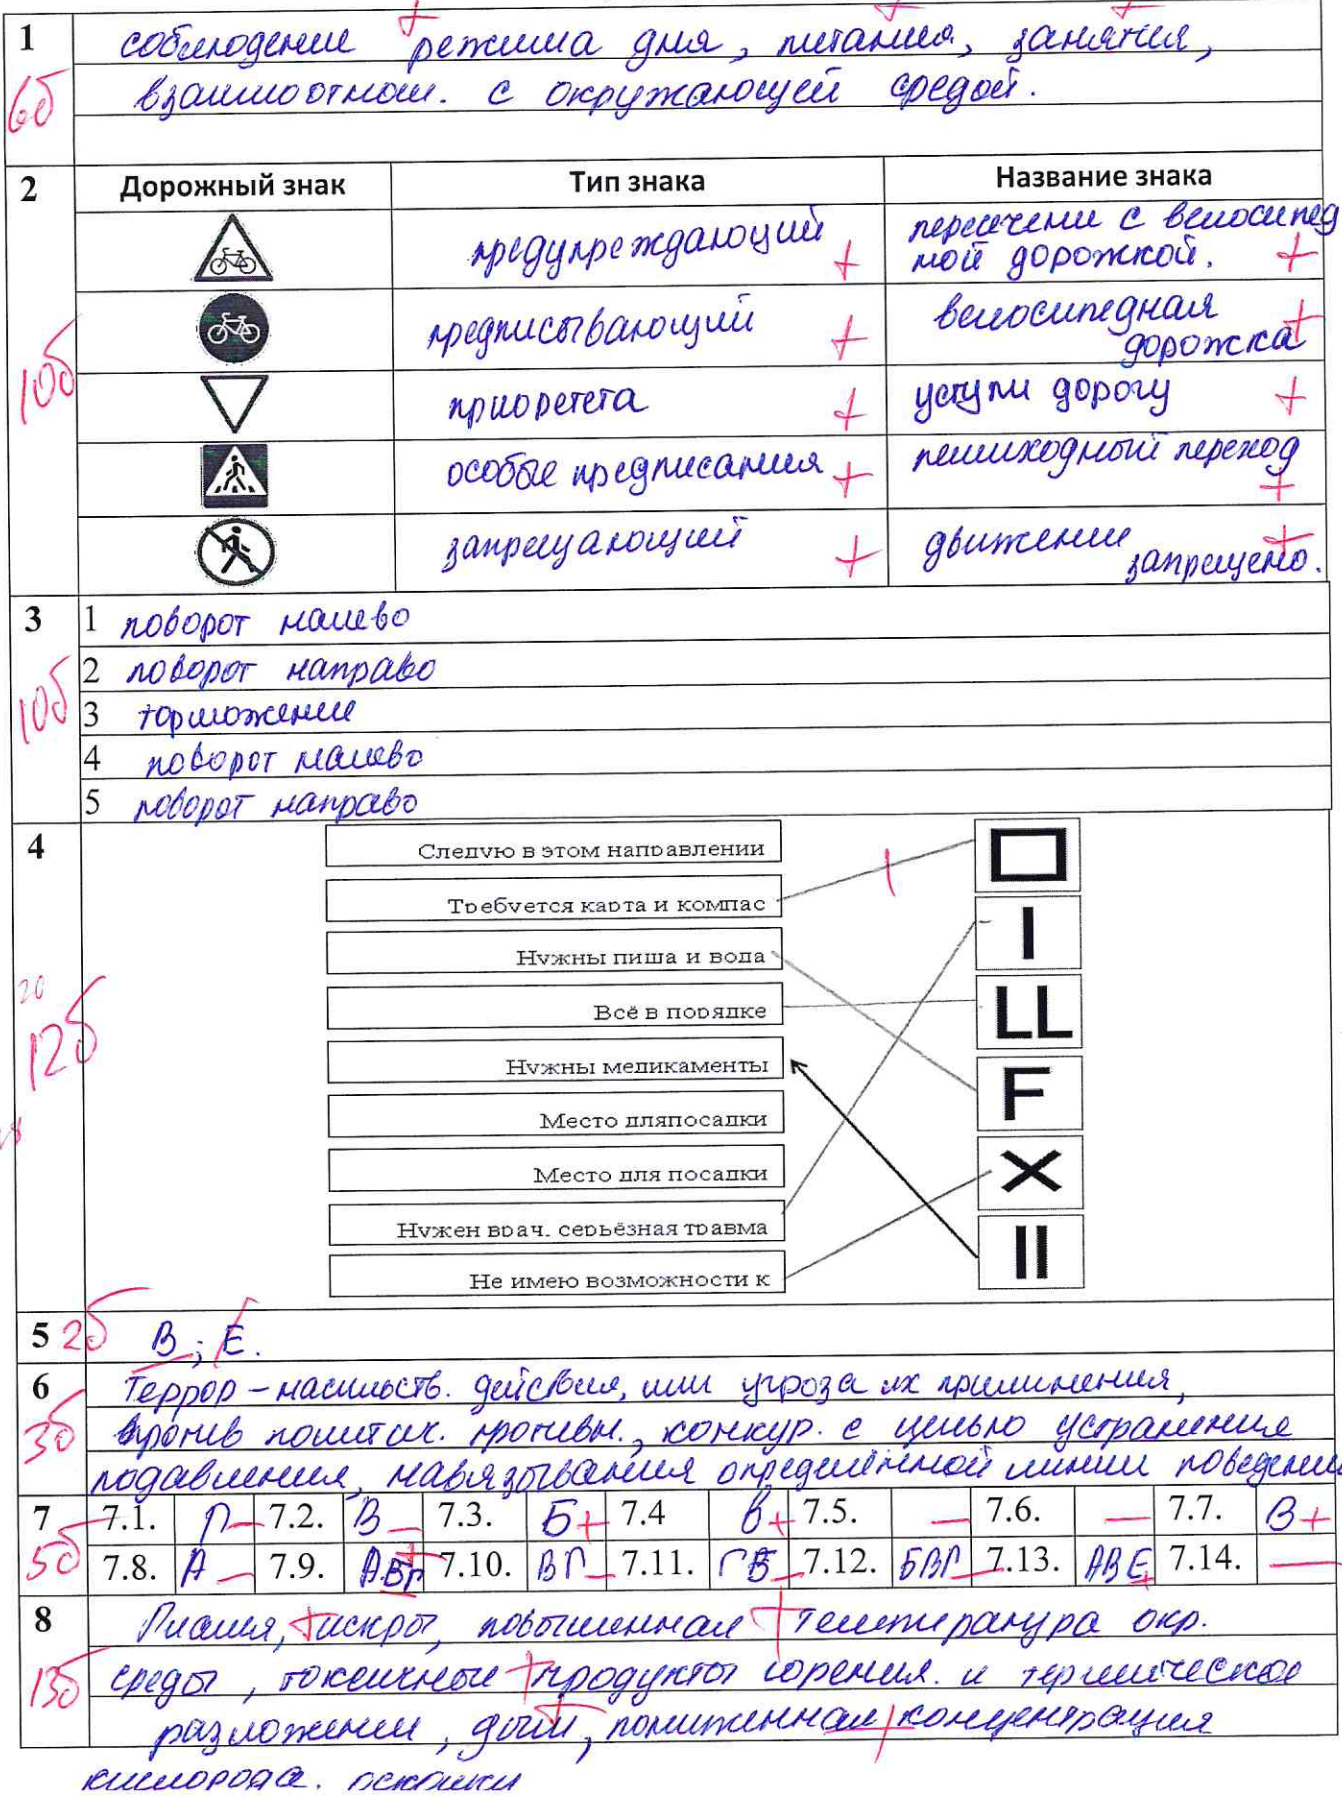 1 соблюдение режима дня, питания, занятия,
6б взаимоотнош. с окружающей средой.
2 Дорожный знак Тип знака Название знака
предупреждающий + пересечение с велосипед
ной дорожкой. +
предписывающий + велосипедная +
дорожка
10б
приоретета + уступи дорогу +
особые предписания + пешиходный переход +
запрещающий + движение +
запрещено.
3 1 поворот налево
2 поворот направо
10б 3 торможение
4 поворот налево
5 поворот направо
4 Следую в этом направлении
Требуется карта и компас
Нужны пища и вода I
Всё в порядке LL
20
12б Нужны медикаменты F
Место дляпосадки
Место для посадки X
Нужен врач, серьёзная травма
Не имею возможности к II
5 2б В; Е.
6 Террор – насильств. действия, или угроза их применения,
3б против политич. противн., конкур. с целью устранения
подавления, навязывания определённой линии поведения
7 7.1. Г 7.2. В 7.3. Б + 7.4 В + 7.5. — 7.6. — 7.7. В +
5б 7.8. А 7.9. АБГ + 7.10. ВГ 7.11. ГБ 7.12. БВГ 7.13. АВЕ + 7.14. —
8 Пламя, искры, повышенная температура окр.
13б среды, токсичные продукты горения. и термическое
разложение, дым, пониженная концентрация
кислорода. осколки